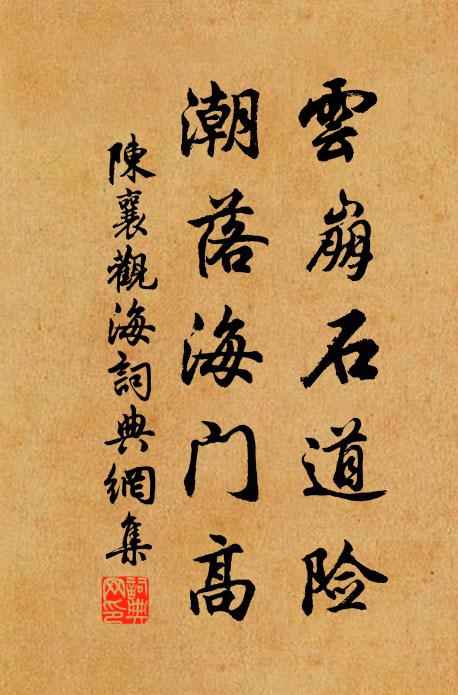 雲崩石道险
潮落海门高
陳襄觀海詞典網集
詞典網印